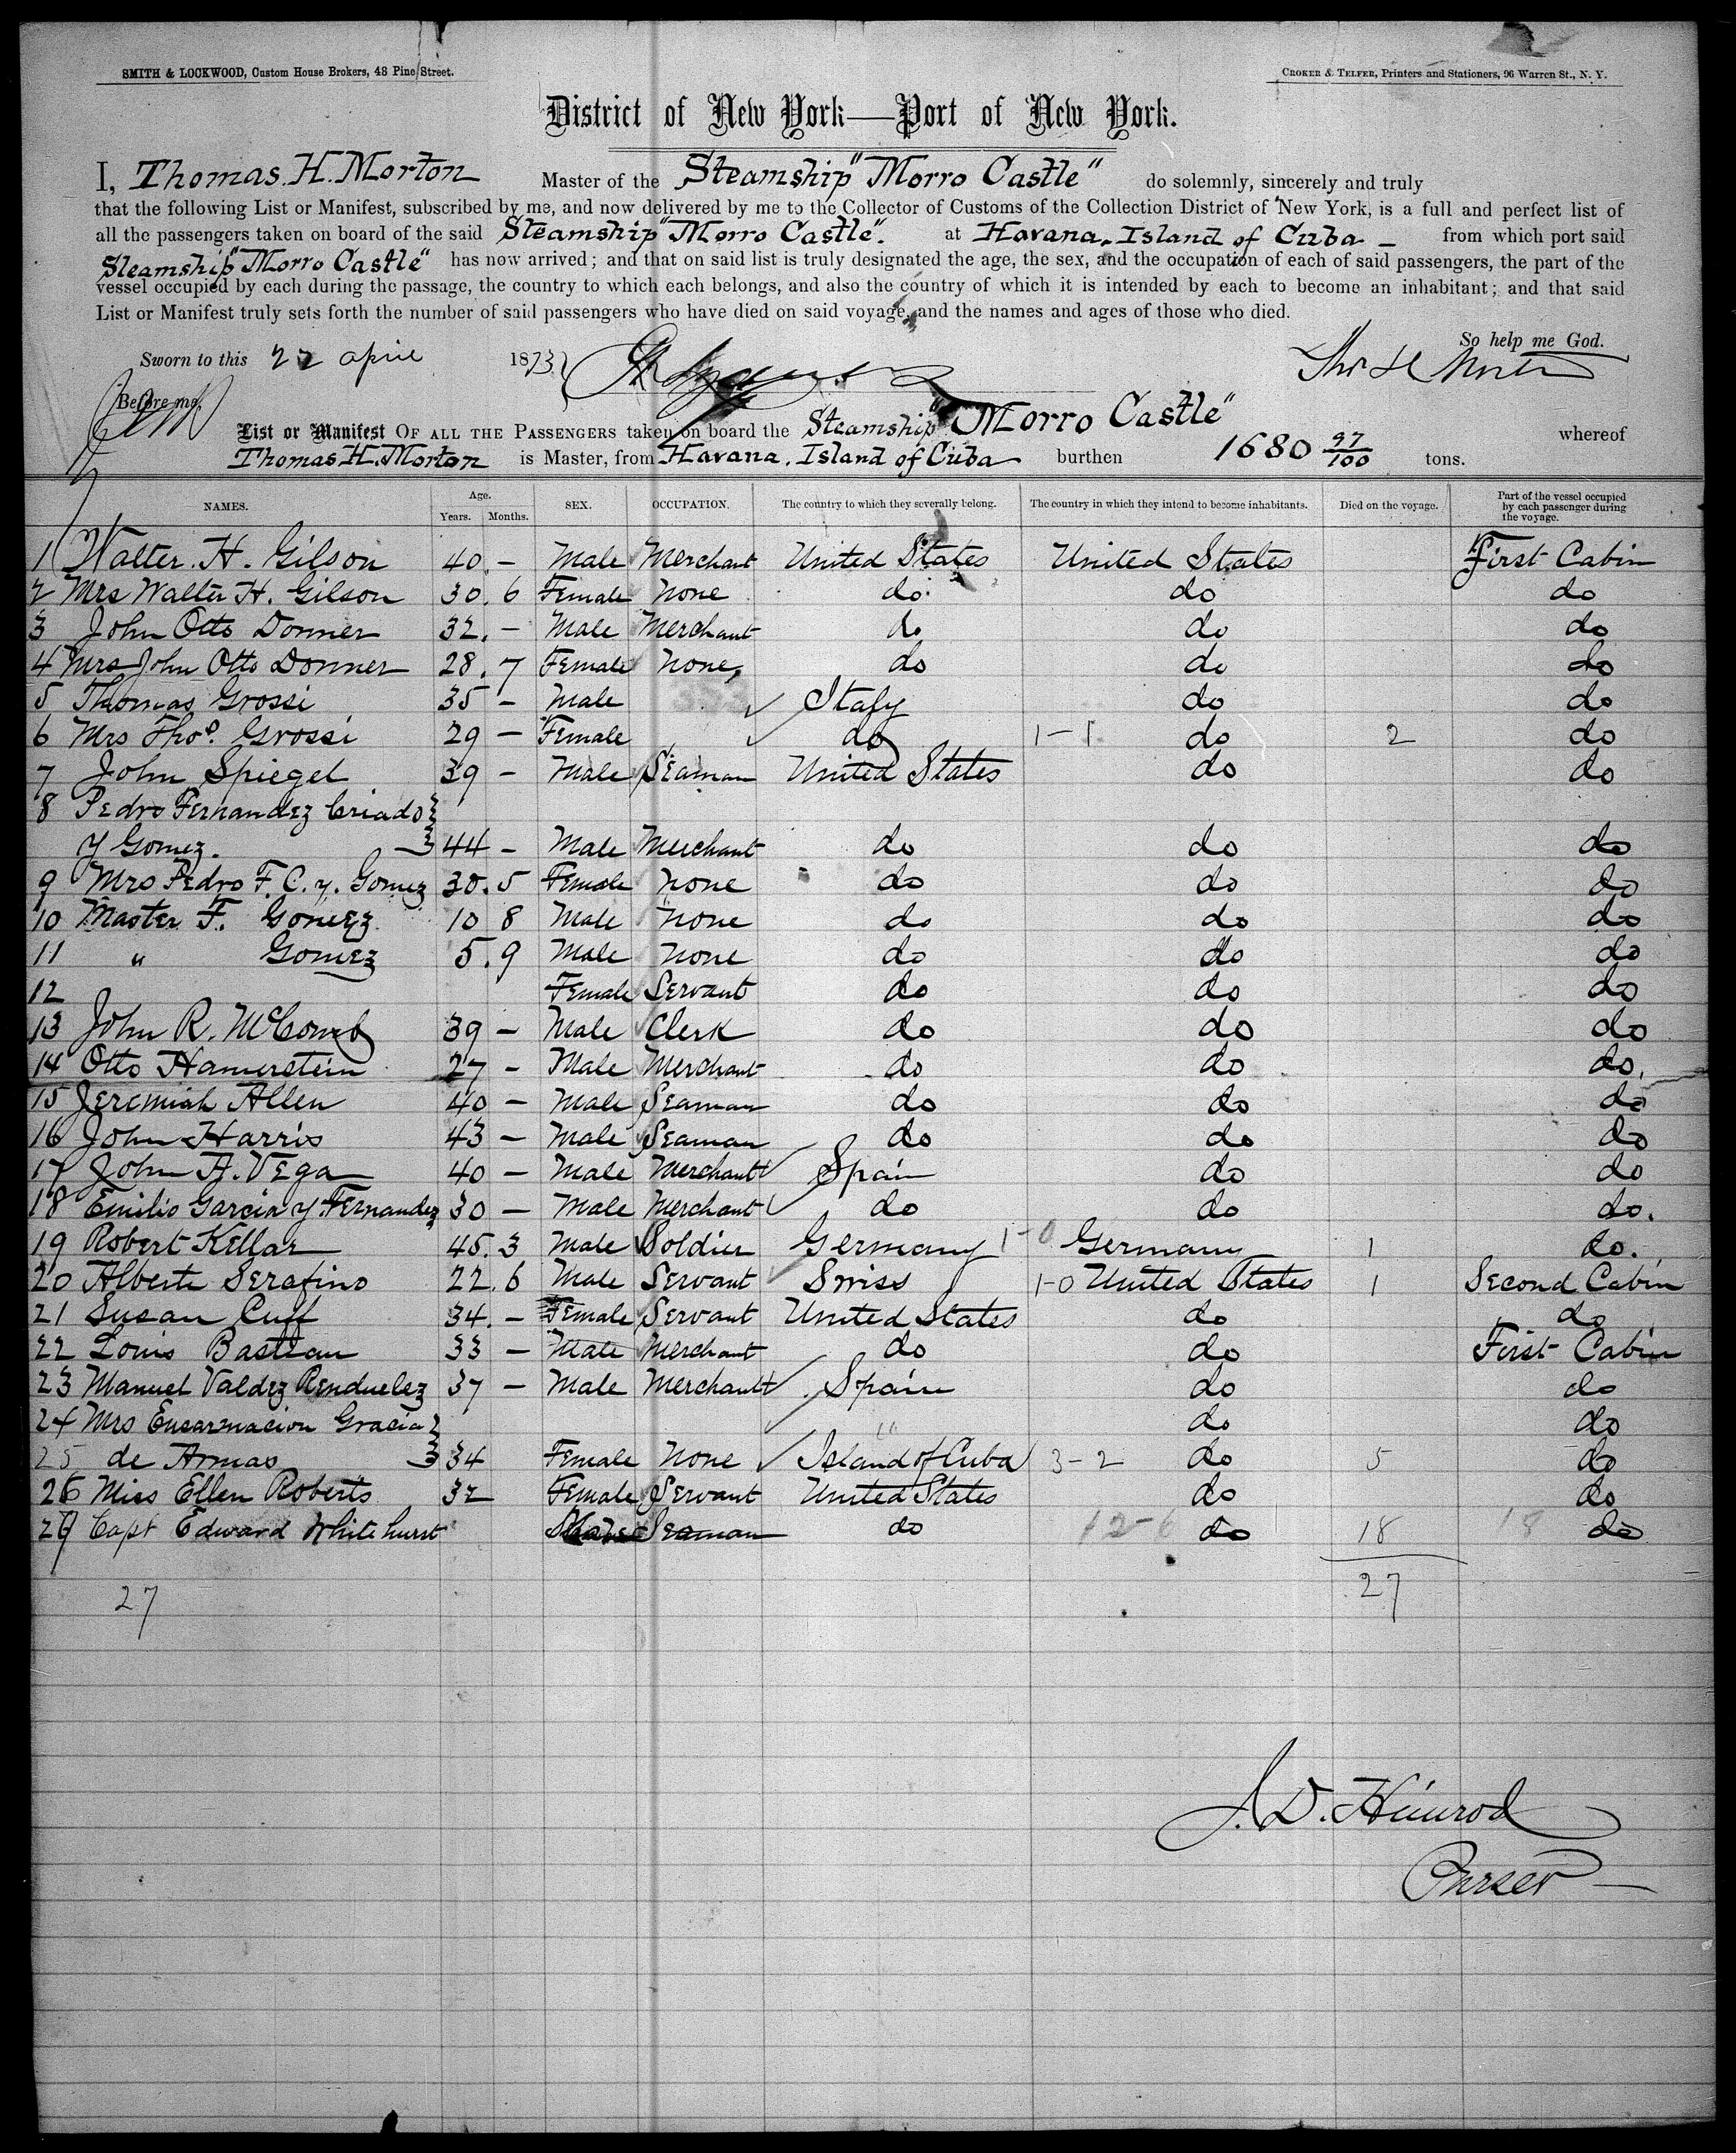 SMITH & LOCKWOOD, Custom House Brokers, 48 Pine Street.
CROKER & TELFER, Printers and Stationers, 96 Warren St., N. Y.
District of New York—Port of New York.
I, Thomas. H. Morton Master of the Steamship "Morro Castle" do solemnly, sincerely and truly
that the following List or Manifest, subscribed by me, and now delivered by me to the Collector of Customs of the Collection District of New York, is a full and perfect list of
all the passengers taken on board of the said Steamship "Morro Castle". at Havana, Island of Cuba — from which port said
Steamship "Morro Castle" has now arrived; and that on said list is truly designated the age, the sex, and the occupation of each of said passengers, the part of the
vessel occupied by each during the passage, the country to which each belongs, and also the country of which it is intended by each to become an inhabitant; and that said
List or Manifest truly sets forth the number of said passengers who have died on said voyage, and the names and ages of those who died.
So help me God.
Sworn to this 22 april 1873 Thos H Morton
Before me,
List or Manifest OF ALL THE PASSENGERS taken on board the Steamship "Morro Castle" whereof
Thomas H. Morton is Master, from Havana. Island of Cuba burthen 1680 97/100 tons.
NAMES. Age. Years. Months. SEX. OCCUPATION. The country to which they severally belong. The country in which they intend to become inhabitants. Died on the voyage. Part of the vessel occupied by each passenger during the voyage.
1 Walter. H. Gilson 40. — Male Merchant United States United States First Cabin
2 Mrs Walter H. Gilson 30. 6 Female None do. do do
3 John Otto Donner 32. — Male Merchant do do do
4 Mrs John Otto Donner 28. 7 Female None, do do do
5 Thomas Grossi 35 — Male Italy do do
6 Mrs Thos. Grossi 29 — Female do 1-1 do 2 do
7 John Spiegel 39 — Male Seaman United States do do
8 Pedro Fernandez Criado
y Gomez. 44 — Male Merchant do do do
9 Mrs Pedro F. C. y. Gomez 30. 5 Female None do do do
10 Master F. Gomez 10 8 Male None do do do
11 " Gomez 5. 9 Male None do do do
12 Female Servant do do do
13 John R. McComb 39 — Male Clerk do do do
14 Otto Hamerstein 27 — Male Merchant do do do.
15 Jeremiah Allen 40 — Male Seaman do do do
16 John Harris 43 — Male Seaman do do do
17 John A. Vega 40 — Male Merchant Spain do do
18 Emilio Garcia y Fernandez 30 — Male Merchant do do do.
19 Robert Kellar 45. 3 Male Soldier Germany 1-0 Germany 1 do.
20 Alberte Serafino 22. 6 Male Servant Swiss 1-0 United States 1 Second Cabin
21 Susan Cuff 34. — Female Servant United States do do
22 Louis Bastian 33 — Male Merchant do do First Cabin
23 Manuel Valdez Renduelez 37 — Male Merchant Spain do do
24 Mrs Encarnacion Gracia do do
25 de Armas 34 Female None Island of Cuba 3-2 do 5 do
26 Miss Ellen Roberts 32 Female Servant United States do do
27 Capt Edward Whitehurst Seaman do 12-6 do 18 18 do
27 27
J. D. Himrod
Purser